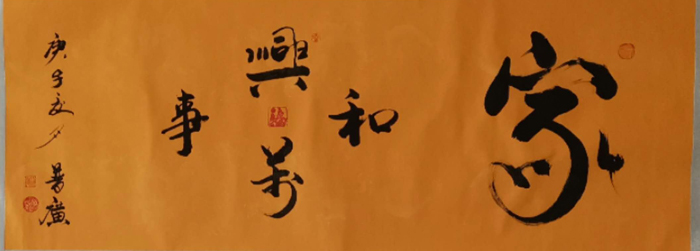 家和萬事興
庚子夏月
廣